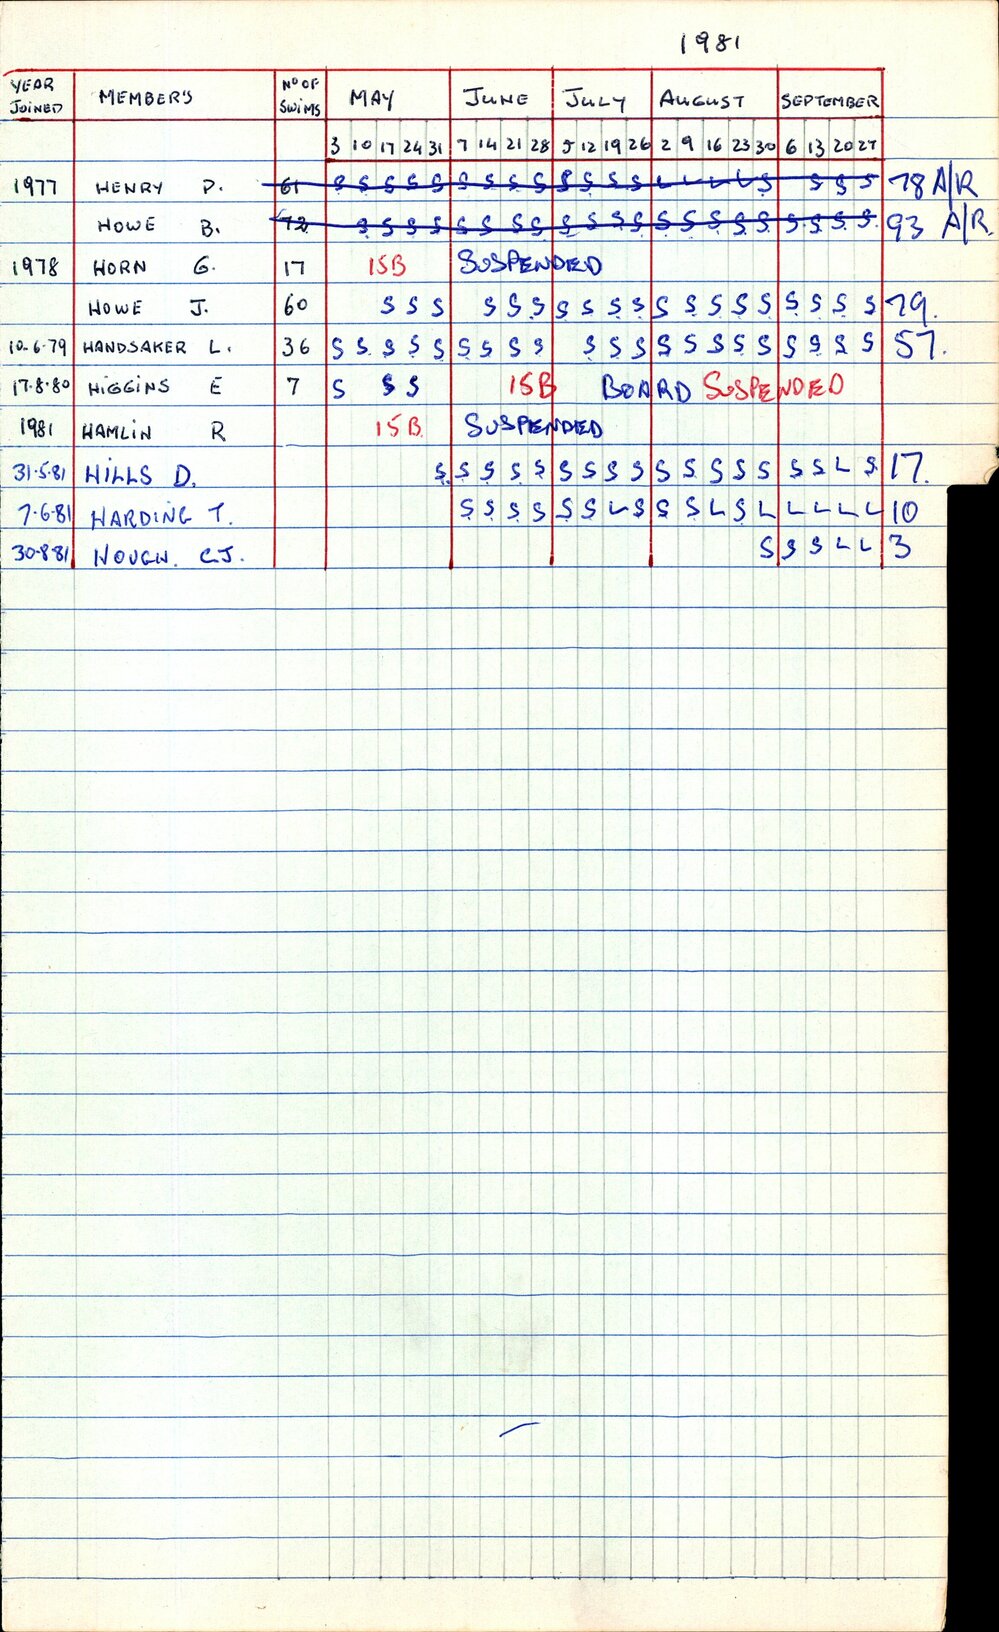 1981
YEAR JOINED MEMBER'S Nº OF SWIMS MAY JUNE JULY AUGUST SEPTEMBER
3 10 17 24 31 7 14 21 28 5 12 19 26 2 9 16 23 30 6 13 20 27
1977 HENRY P. 61 S S S S S S S S S S S S S L L L L S S S S 78 A/R
HOWE B. 72 S S S S S S S S S S S S S S S S S S S S S 93 A/R.
1978 HORN G. 17 15B SUSPENDED
HOWE J. 60 S S S S S S S S S S S S S S S S S S S 79.
10.6.79 HANDSAKER L. 36 S S S S S S S S S S S S S S S S S S S S S 57.
17.8.80 HIGGINS E 7 S S S 15B BOARD SUSPENDED
1981 HAMLIN R 15B SUSPENDED
31.5.81 HILLS D. S S S S S S S S S S S S S S S S L S 17.
7.6.81 HARDING T. S S S S S S L S S S L S L L L L L 10
30.8.81 HOUGH. C.J. S S S L L 3